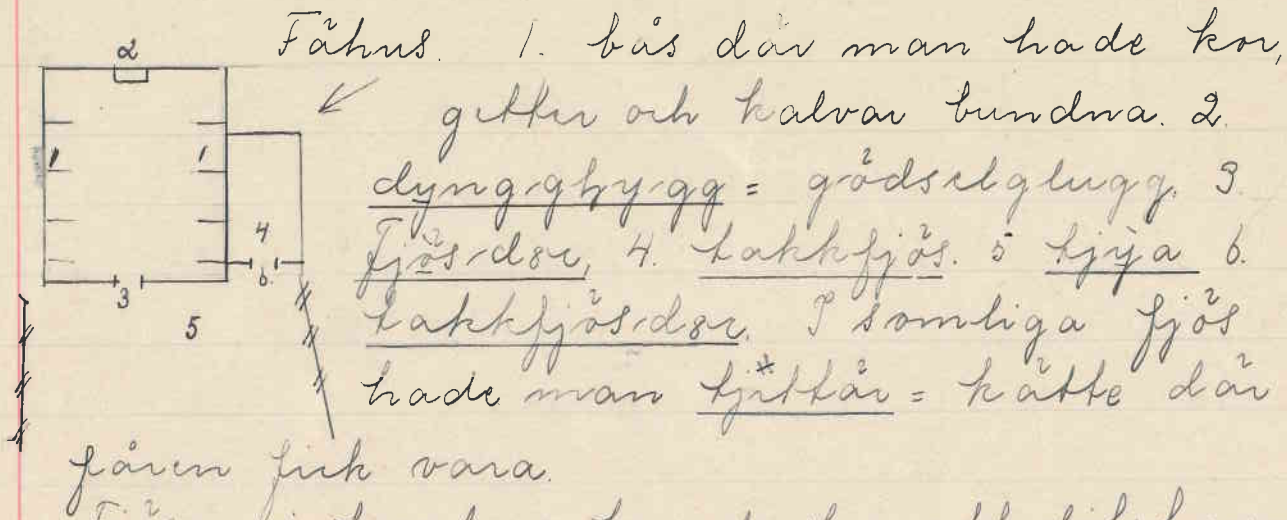 2
Fähus. 1. bås där man hade kor,
getter och kalvar bundna. 2.
dyng-ghy-gg = gödselglugg. 3.
Fjös-dør, 4. takkfjös. 5 tjya 6.
takkfjös-dør. I somliga fjös
hade man tjettär = kätte där
fåren fick vara.
1 1
4
6.
3
5